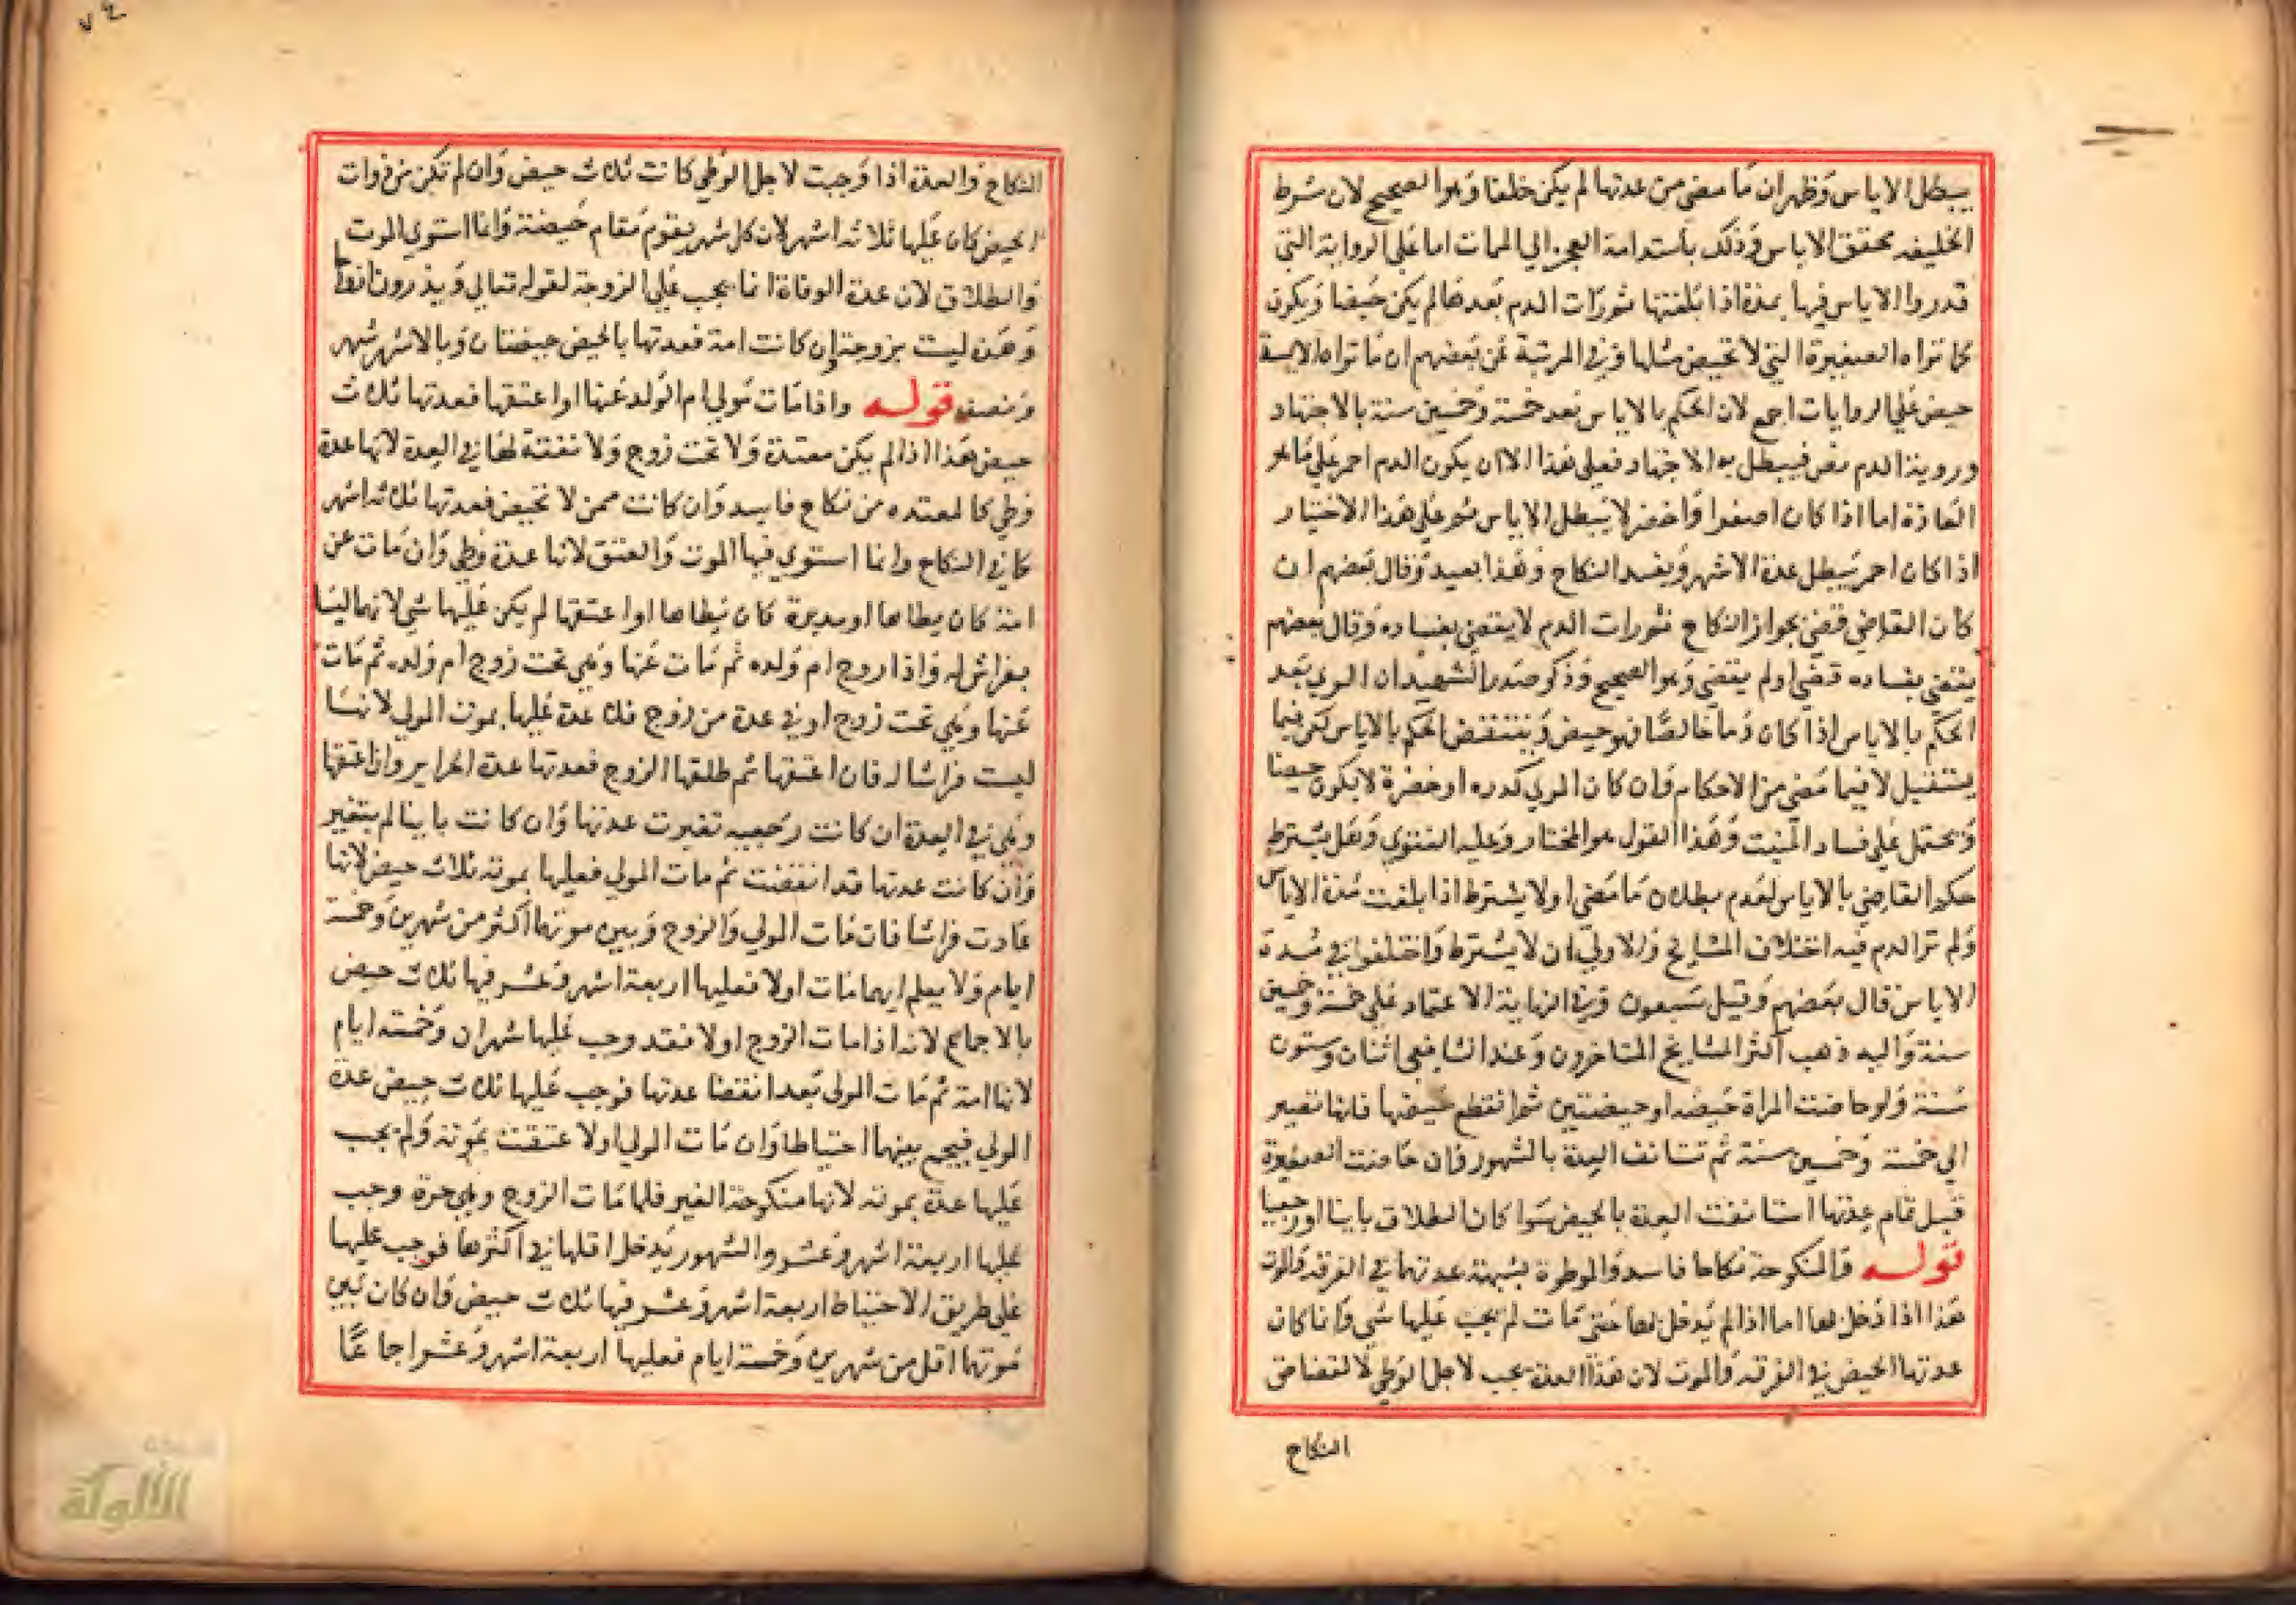 يبطل الاياس وظهر ان ما مضى من عدتها لم يكن خلفا وهو الصحيح لان شرط
الخليفه تحقق الاياس وذلك باستدامة العجز الي الممات اما على الرواية التي
قدروا الاياس فيها بمدة اذا بلغتها ثم رات الدم بعدها لم يكن حيضا ويكون
كما تراه الصغيرة التي لا تحيض مثلها وفي المرتبة عن بعضهم ان ما تراه الايسة
حيض على الروايات اجمع لان الحكم بالاياس بعد خمسة وخمسين سنة بالاجتهاد
وروية الدم نص فيبطل به الاجتهاد فعلى هذا الا ان يكون الدم احمر على ما هو
العادة اما اذا كان اصفرا واخضر لا يبطل الاياس ثم على هذا الاختيار
اذا كان احمر يبطل عدة الاشهر ويفسد النكاح وهذا بعيد وقال بعضهم ان
كان القاضي قضي بجواز النكاح ثم رات الدم لا يقضي بفساده وقال بعضهم
يقضي بفساده قضي او لم يقضي وهو الصحيح وذكر صدر الشهيد ان المري بعد
الحكم بالاياس اذا كان دما خالصا فهو حيض وينتقض الحكم بالاياس لكن فيما
يستقبل لا فيما مضى من الاحكام وان كان المري كدره او خضرة لا يكون حيضا
ويحتمل على فساد المنبت وهذا القول هو المختار وعليه الفتوي وهل يشترط
حكم القاضي بالاياس لعدم بطلان ما مضى اولا يشترط اذا بلغت مدة الاياس
ولم تر الدم فيه اختلاف المشايخ والاولي ان لا يشترط واختلفوا في مدة
الاياس قال بعضهم وقيل سبعون وفي النهاية الاعتماد على خمسة وخمسين
سنة واليه ذهب اكثر المشايخ المتاخرون وعند الشافعي اثنان وستون
سنة ولو حاضت المراة حيضه او حيضتين ثم انقطع حيضها فانها تصير
الي خمسة وخمسين سنة ثم تستانف العدة بالشهور وان حاضت الصغيرة
قبل تمام عدتها استانفت العدة بالحيض سوا كان الطلاق باينا او رجعيا
قوله والمنكوحة نكاحا فاسدو الموطوة بشبهة عدتهما في الفرقة والموت
هذا اذا دخل بها اما اذا لم يدخل بها حتى مات لم يجب عليها شي وانما كان
عدتها الحيض في الفرقه والموت لان هذا العدة يجب لاجل الوطي لا لقضا حق
النكاح
النكاح والعدة اذا وجبت لاجل الوطي كانت ثلاث حيض وان لم تكن من ذوات
الحيض كان عليها ثلاثة اشهر لان كل شهر يقوم مقام حيضة وانما استوي الموت
والطلاق لان عدة الوفاة انما يجب على الزوجة لقوله تعالي ويذرون ازواجا
وهذه ليست بزوجة ان كانت امة فعدتها بالحيض حيضتان وبالاشهر شهر
ونصف قوله واذا مات مولي ام الولد عنها او اعتقها فعدتها ثلاث
حيض هذا اذا لم يكن معتدة ولا تحت زوج ولا نفقة لها في العدة لانها عدة
وطي كالمعتده من نكاح فاسد وان كانت ممن لا تحيض فعدتها ثلاثه اشهر
كما في النكاح وانما استوي فيها الموت والعتق لانها عدة وطي وان مات عن
امة كان يطاها او مدبرة كان يطاها او اعتقها لم يكن عليها شي لانهما ليستا
بفراش له واذا زوج ام ولده ثم مات عنها وهي تحت زوج ام ولده ثم مات
عنها وهي تحت زوج او في عدة من زوج فلا عدة عليها بموت المولي لانها
ليست فراشا له فان اعتقها ثم طلقها الزوج فعدتها عدة الحراير وان اعتقها
وهي في العدة ان كانت رجعيه تغيرت عدتها وان كانت باينا لم يتغير
وان كانت عدتها قد انقضت ثم مات المولي فعليها بموته ثلاث حيض لانها
عادت فراشا فان مات المولي والزوج وبين موتهما اكثر من شهرين وخمسة
ايام ولا يعلم ايهما مات اولا فعليها اربعة اشهر وعشر فيها ثلاث حيض
بالاجماع لانه اذا مات الزوج اولا فقد وجب عليها شهران وخمسة ايام
لانها امة ثم مات المولى بعد انقضا عدتها فوجب عليها ثلاث حيض عدة
المولي فيجمع بينهما احتياطا وان مات المولي اولا عتقت بموته ولم يجب
عليها عدة بموته لانها منكوحة الغير فلما مات الزوج وهي حرة وجب
عليها اربعة اشهر وعشر والشهور يدخل اقلها في اكثرها فوجب عليها
على طريق الاحتياط اربعة اشهر وعشر فيها ثلاث حيض وان كان بين
موتهما اقل من شهرين وخمسة ايام فعليها اربعة اشهر وعشر اجماعا
الألوكة